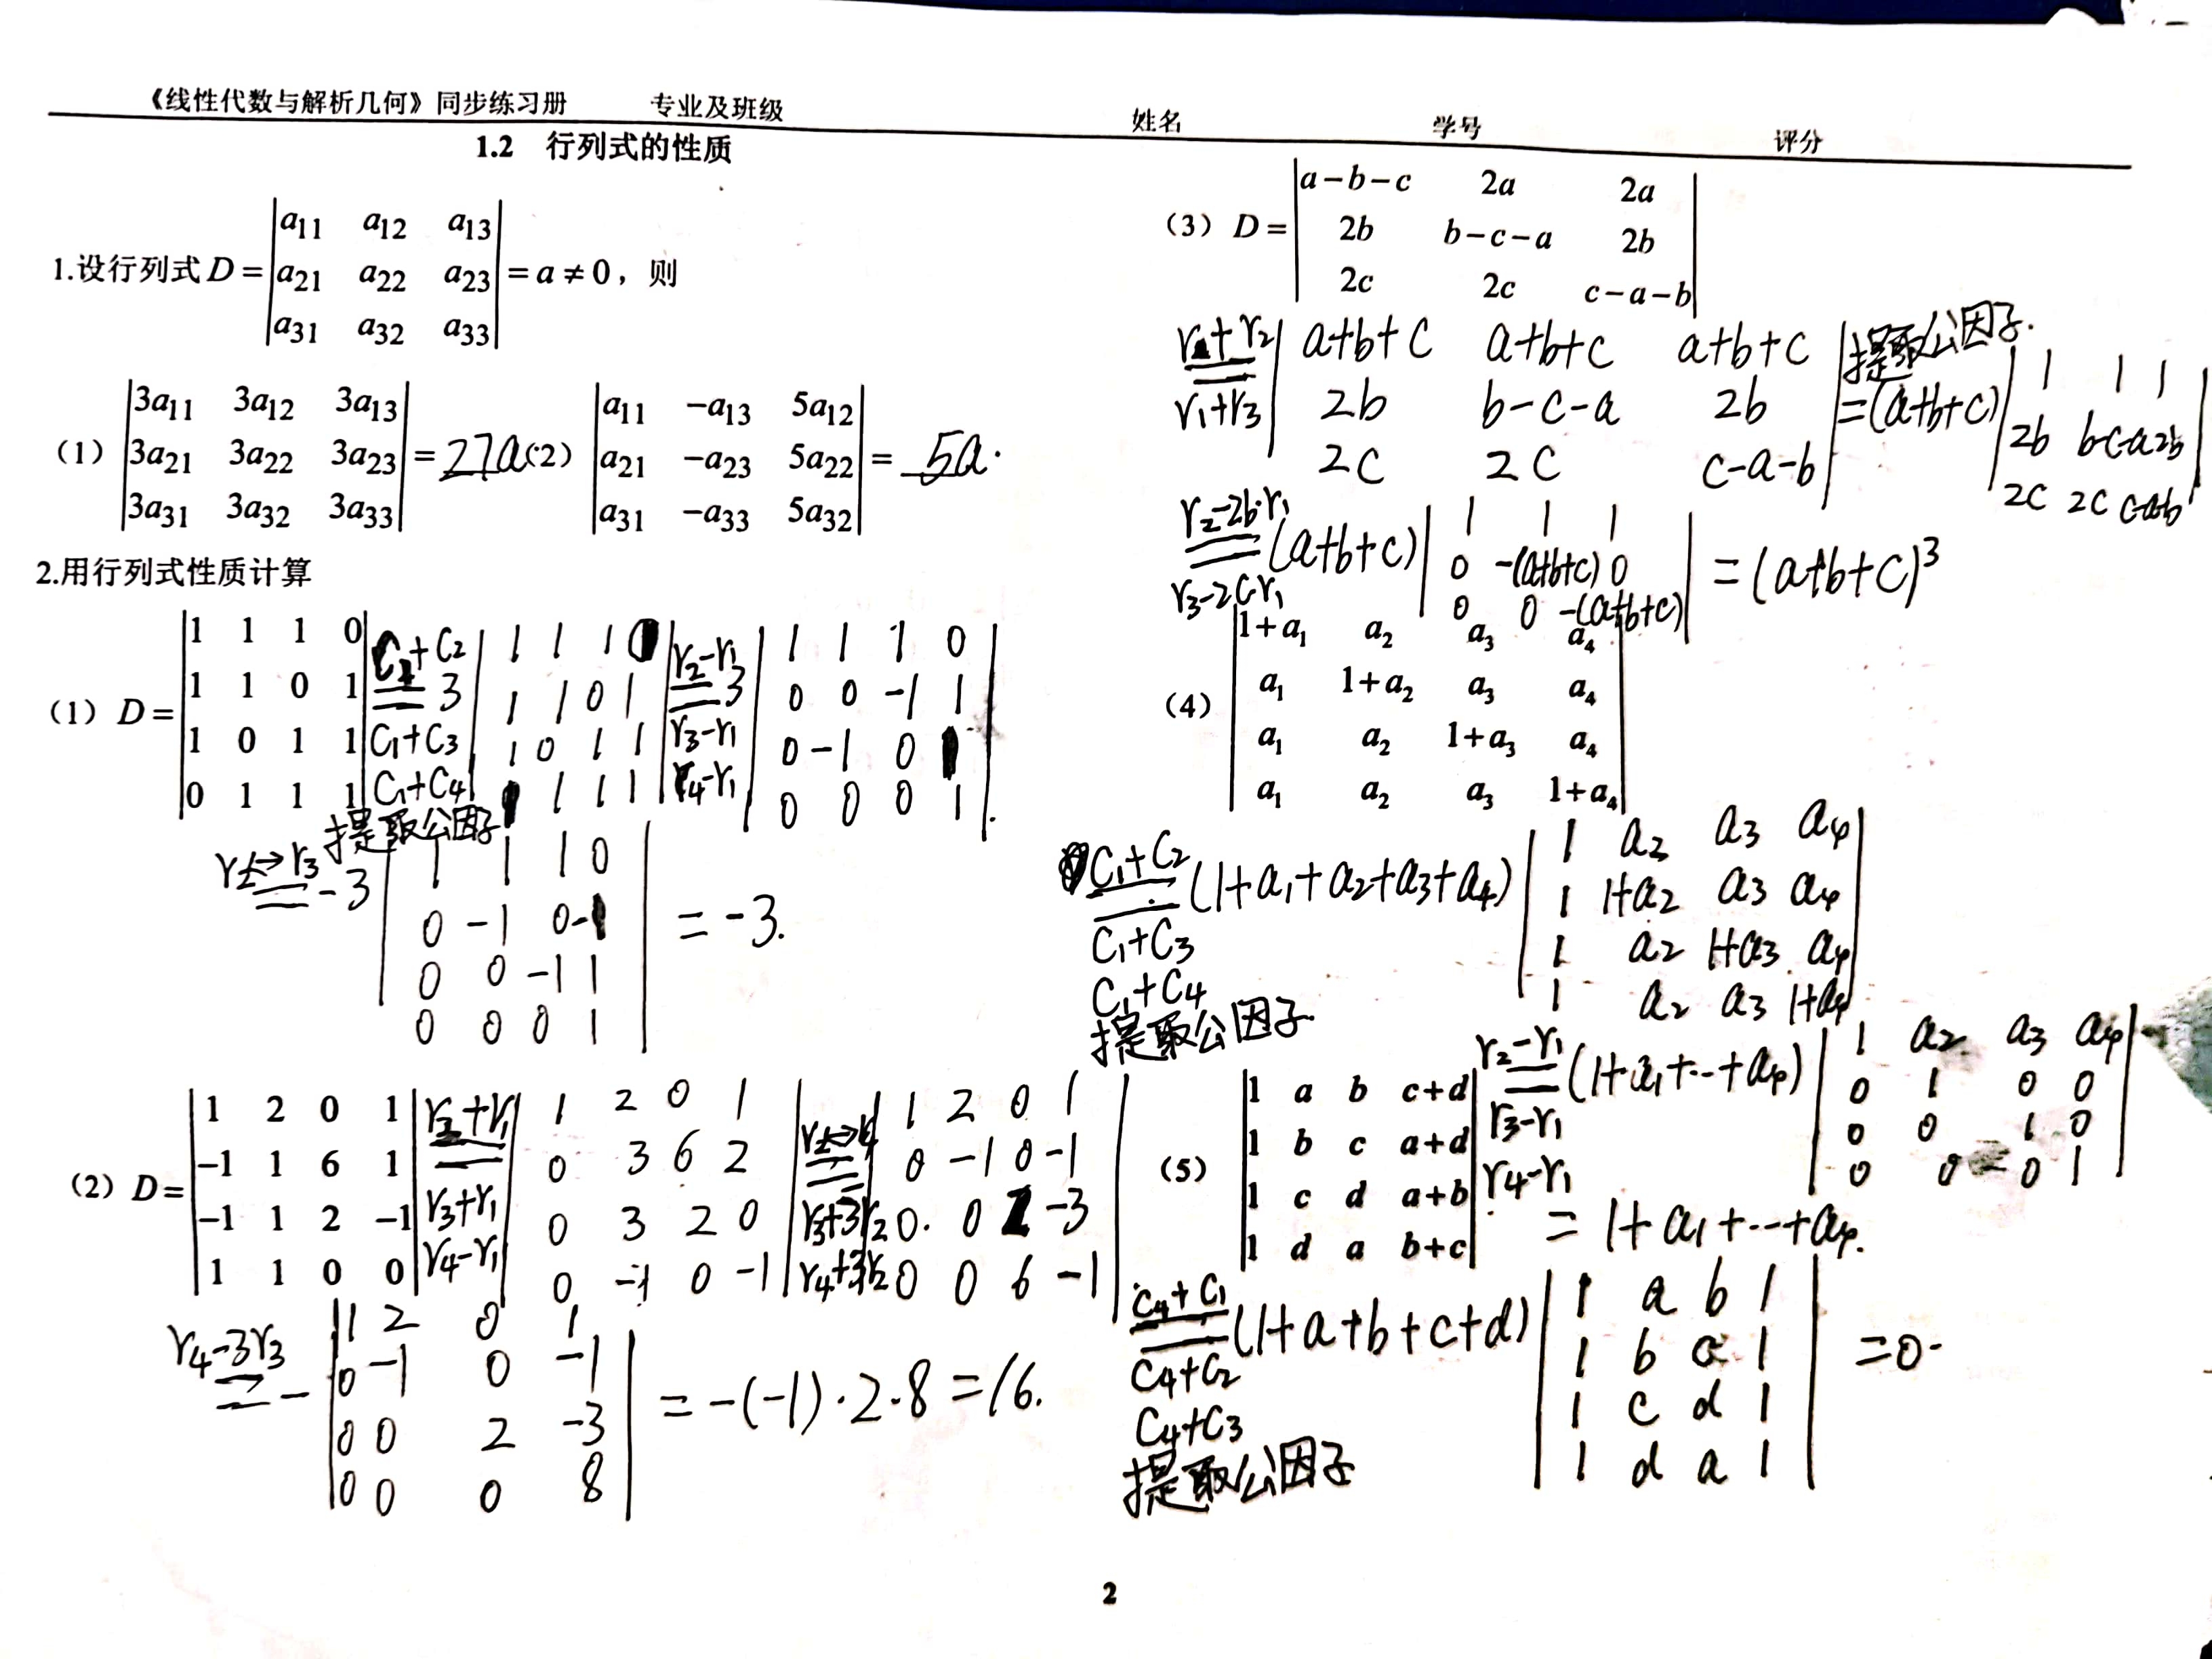 《线性代数与解析几何》同步练习册 专业及班级 姓名 学号 评分
1.2 行列式的性质
1.设行列式 D = |a11 a12 a13|
|a21 a22 a23| = a ≠ 0，则
|a31 a32 a33|
（1） |3a11 3a12 3a13|
|3a21 3a22 3a23| = 27a
|3a31 3a32 3a33|
（2） |a11 −a13 5a12|
|a21 −a23 5a22| = 5a.
|a31 −a33 5a32|
2.用行列式性质计算
（1） D = |1 1 1 0|
|1 1 0 1|
|1 0 1 1|
|0 1 1 1|
C1+C2
C1+C3
C1+C4
提取公因子
3 |1 1 1 0|
|1 1 0 1|
|1 0 1 1|
|1 1 1 1|
r2-r1
r3-r1
r4-r1
3 |1 1 1 0|
|0 0 -1 1|
|0 -1 0 1|
|0 0 0 1|
r2↔r3
-3 |1 1 1 0|
|0 -1 0 1|
|0 0 -1 1|
|0 0 0 1|
= -3.
（2） D = |1 2 0 1|
|−1 1 6 1|
|−1 1 2 −1|
|1 1 0 0|
r2+r1
r3+r1
r4-r1
|1 2 0 1|
|0 3 6 2|
|0 3 2 0|
|0 -1 0 -1|
r2↔r4
r3+3r2
r4+3r2
|1 2 0 1|
|0 -1 0 -1|
|0 0 2 -3|
|0 0 6 -1|
r4-3r3
- |1 2 0 1|
|0 -1 0 -1|
|0 0 2 -3|
|0 0 0 8|
= -(-1)·2·8 = 16.
（3） D = |a−b−c 2a 2a|
|2b b−c−a 2b|
|2c 2c c−a−b|
r1+r2
r1+r3
|a+b+c a+b+c a+b+c|
|2b b-c-a 2b|
|2c 2c c-a-b|
提取公因子.
=(a+b+c) |1 1 1|
|2b b-c-a 2b|
|2c 2c c-a-b|
r2-2b·r1
r3-2c·r1
(a+b+c) |1 1 1|
|0 -(a+b+c) 0|
|0 0 -(a+b+c)|
= (a+b+c)³
（4） |1+a1 a2 a3 a4|
|a1 1+a2 a3 a4|
|a1 a2 1+a3 a4|
|a1 a2 a3 1+a4|
C1+C2
C1+C3
C1+C4
提取公因子.
(1+a1+a2+a3+a4) |1 a2 a3 a4|
|1 1+a2 a3 a4|
|1 a2 1+a3 a4|
|1 a2 a3 1+a4|
r2-r1
r3-r1
r4-r1
(1+a1+...+a4) |1 a2 a3 a4|
|0 1 0 0|
|0 0 1 0|
|0 0 0 1|
= 1+a1+...+a4.
（5） |1 a b c+d|
|1 b c a+d|
|1 c d a+b|
|1 d a b+c|
C4+C1
C4+C2
C4+C3
提取公因子
(1+a+b+c+d) |1 a b 1|
|1 b c 1|
|1 c d 1|
|1 d a 1|
=0.
2